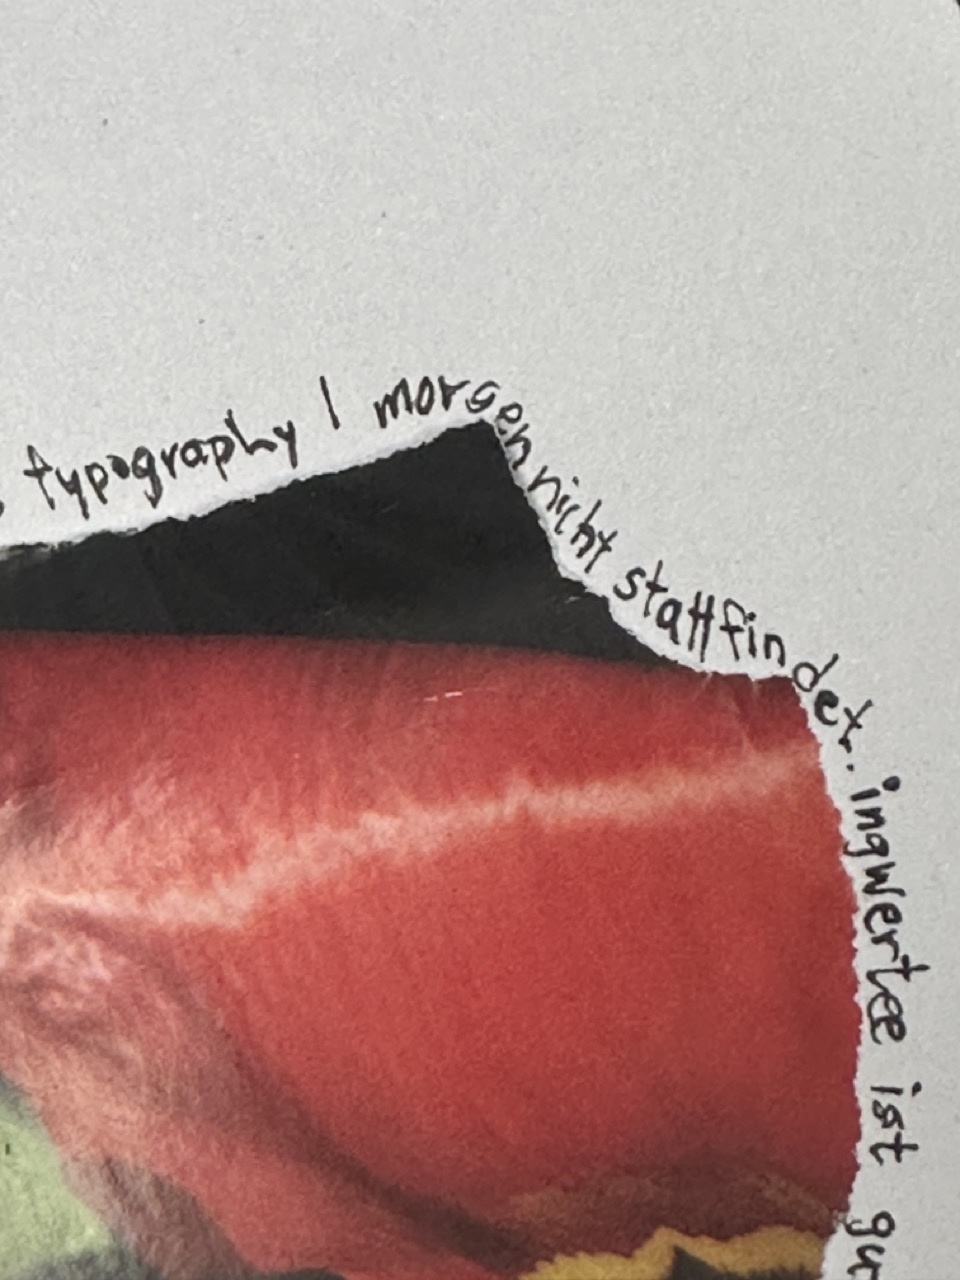 typography | morgen nicht stattfindet. ingwertee ist gu